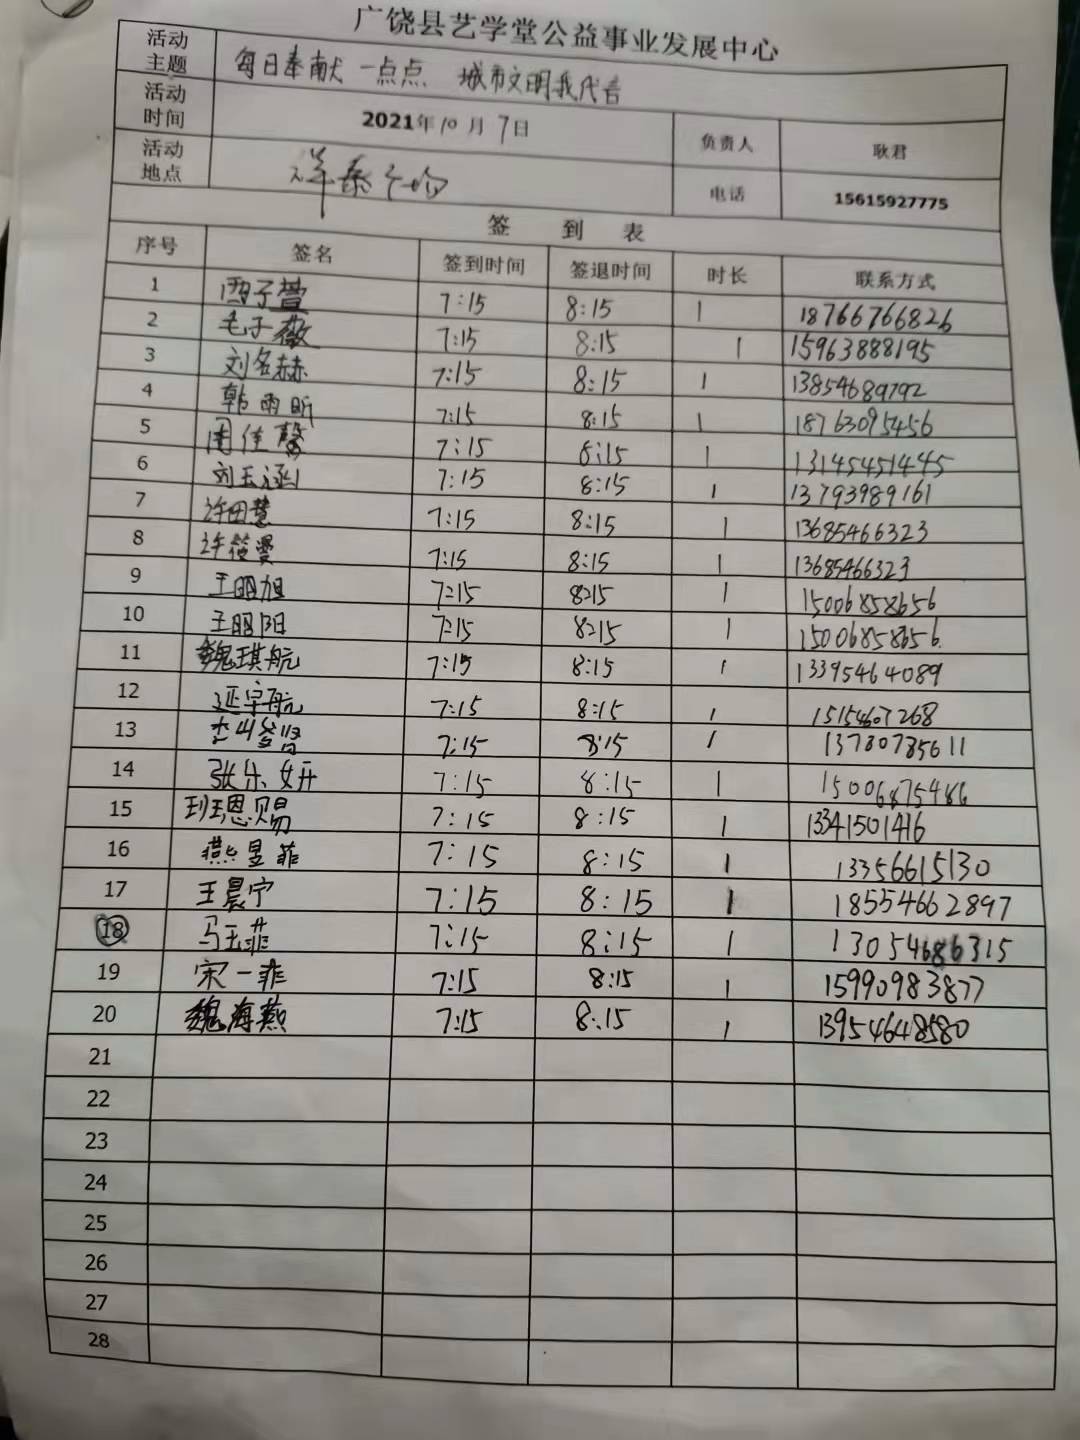 广饶县艺学堂公益事业发展中心
活动主题 每日奉献一点点 城市文明我代言
活动时间 2021年10月7日 负责人 耿君
活动地点 祥泰广场 电话 15615927775
签到表
序号 签名 签到时间 签退时间 时长 联系方式
1 西子萱 7:15 8:15 1 18766766826
2 毛子薇 7:15 8:15 1 15963888195
3 刘名赫 7:15 8:15 1 13854689792
4 韩雨昕 7:15 8:15 1 18763095456
5 周佳馨 7:15 8:15 1 13145451445
6 刘玉涵 7:15 8:15 1 13793989161
7 许田慧 7:15 8:15 1 13685466323
8 许筱曼 7:15 8:15 1 13685466323
9 王明旭 7:15 8:15 1 15006858656
10 王明阳 7:15 8:15 1 15006858656
11 魏琪航 7:15 8:15 1 13395464089
12 延宇航 7:15 8:15 1 15154607268
13 7:15 8:15 1 13780785611
14 张乐妍 7:15 8:15 1 15006875486
15 班恩赐 7:15 8:15 1 13341501416
16 燕昱菲 7:15 8:15 1 13356615130
17 王晨宁 7:15 8:15 1 18554662897
18 马玉菲 7:15 8:15 1 13054686315
19 宋一菲 7:15 8:15 1 15990983877
20 魏海燕 7:15 8:15 1 13954648580
21
22
23
24
25
26
27
28